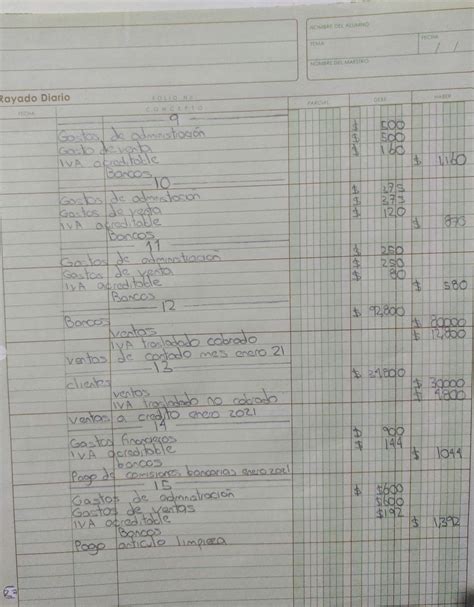 NOMBRE DEL ALUMNO
TEMA FECHA
/ /
NOMBRE DEL MAESTRO
Rayado Diario FOLIO No.
FECHA CONCEPTO PARCIAL DEBE HABER
9
Gastos de administración $ 500
Gasto de venta $ 500
IVA acreditable $ 160
Bancos $ 1,160
10
Gastos de administracion $ 375
Gastos de venta $ 375
IVA acreditable $ 120
Bancos $ 870
11
Gastos de administración $ 250
Gastos de venta $ 250
IVA acreditable $ 80
Bancos $ 580
12
Bancos $ 92,800
ventas $ 80000
IVA trasladado cobrado $ 12,800
ventas de contado mes enero 21
13
clientes $ 34,800
ventas $ 30000
IVA trasladado no cobrado $ 4,800
ventas a credito enero 2021
14
Gastos financieros $ 900
IVA acreditable $ 144
bancos $ 1044
Pago de comisiones bancarias enero 2021
15
Gastos de administracion $ $600
Gastos de ventas $600
IVA acreditable $192
Bancos $ 1,392
Pago articulo limpieza